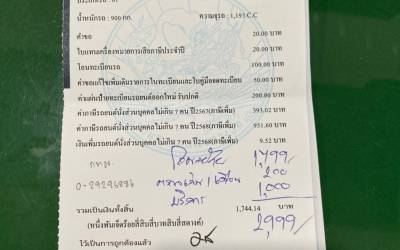 น้ำหนักรถ - 900 กก. ความจุรถ : 1,193 C.C
ค่าขอ 20.00 บาท
ใบแทนเครื่องหมายการเสียภาษีประจำปี 20.00 บาท
โอนทะเบียนรถ 100.00 บาท
ค่าขอแก้ไขเพิ่มเติมรายการในทะเบียนและใบคู่มือจดทะเบียน 50.00 บาท
ค่าแผ่นป้ายทะเบียนรถยนต์ออกใหม่ รับปกติ 200.00 บาท
ค่าภาษีรถยนต์นั่งส่วนบุคคลไม่เกิน 7 คน ปี2567(ภาษีเพิ่ม) 393.02 บาท
ค่าภาษีรถยนต์นั่งส่วนบุคคลไม่เกิน 7 คน ปี2568(ภาษีเพิ่ม) 951.60 บาท
เงินเพิ่มรถยนต์นั่งส่วนบุคคลไม่เกิน 7 คน ปี2568 9.52 บาท
1,799/
200
1,000
บริการ
รวมเป็นเงินทั้งสิ้น 1,744.14 บาท
(หนึ่งพันเจ็ดร้อยสี่สิบสี่บาทสิบสี่สตางค์) 2,999/
ไว้เป็นการถูกต้องแล้ว